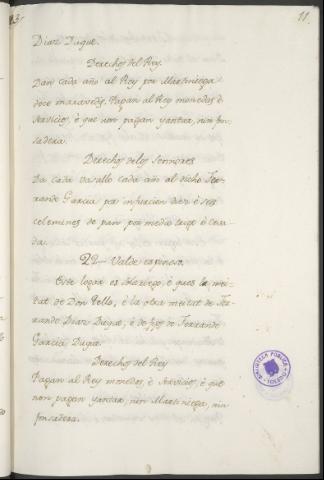 11.
Diaz Duque.
Derechos del Rey.
Dan cada año al Rey por Martiniega
doce maravedis. Pagan al Rey monedas è
servicios, è que non pagan yantar, nin fon
sadera.
Derechos delos sennores
Da cada vasallo cada año al dicho Fer-
rando Garcia por infurcion diez è seis
celemines de pan por medio trigo è ceva-
da.
22 - Valde espinoso.
Este logar es Abadengo, è que es la mei-
tat de Don Tello, è la otra meitat de Fer-
rando Diaz Duque, è de fijos de Ferrando
Garcia Duque.
Derechos del Rey
Pagan al Rey monedas, è servicios, è que
non pagan yantar, nin Martiniega, nin
fonsadera.
BIBLIOTECA PUBLICA
TOLEDO